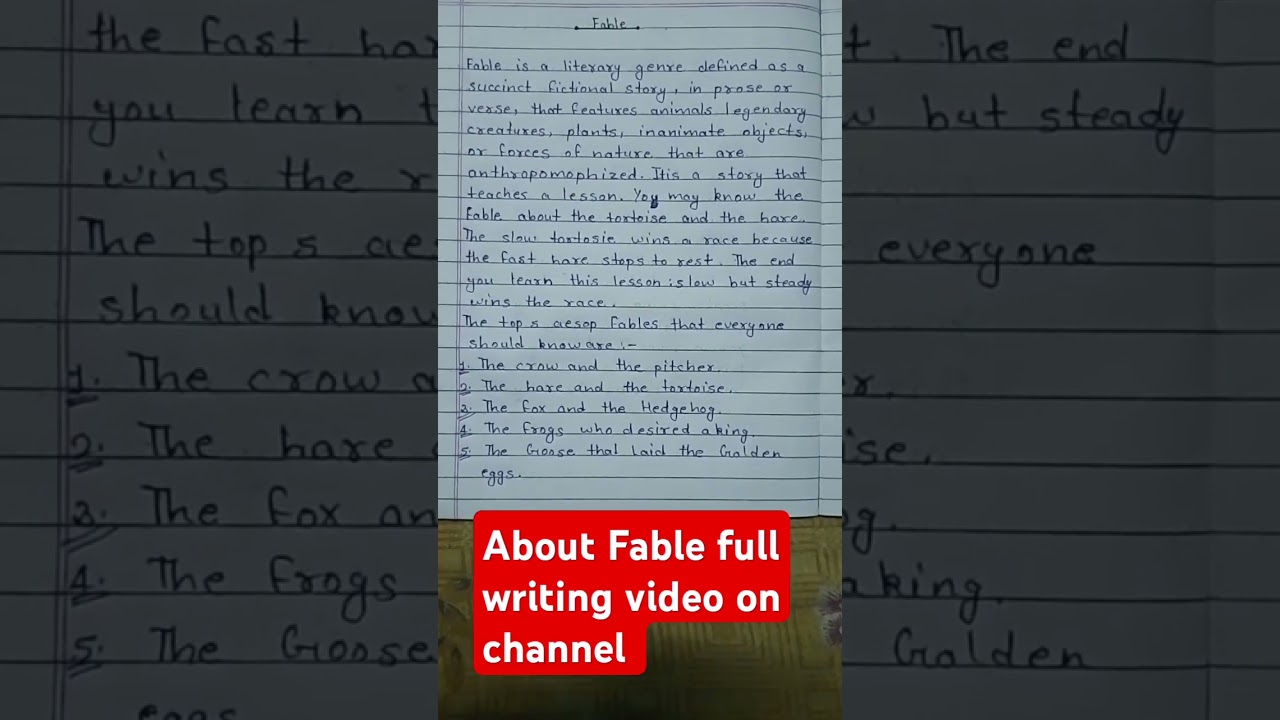 . Fable .
Fable is a literary genre defined as a
succinct fictional story, in prose or
verse, that features animals legendary
creatures, plants, inanimate objects,
or forces of nature that are
anthropomophized. Itis a story that
teaches a lesson. You may know the
Fable about the tortoise and the hare.
The slow tortosie wins a race because
the fast hare stops to rest. The end
you learn this lesson : slow but steady
wins the race.
The top 5 aesop Fables that everyone
should know are :-
1. The crow and the pitcher.
2. The hare and the tortoise.
3. The fox and the Hedgehog.
4. The frogs who desired a king.
5. The Goose that Laid the Golden
eggs.
About Fable full
writing video on
channel